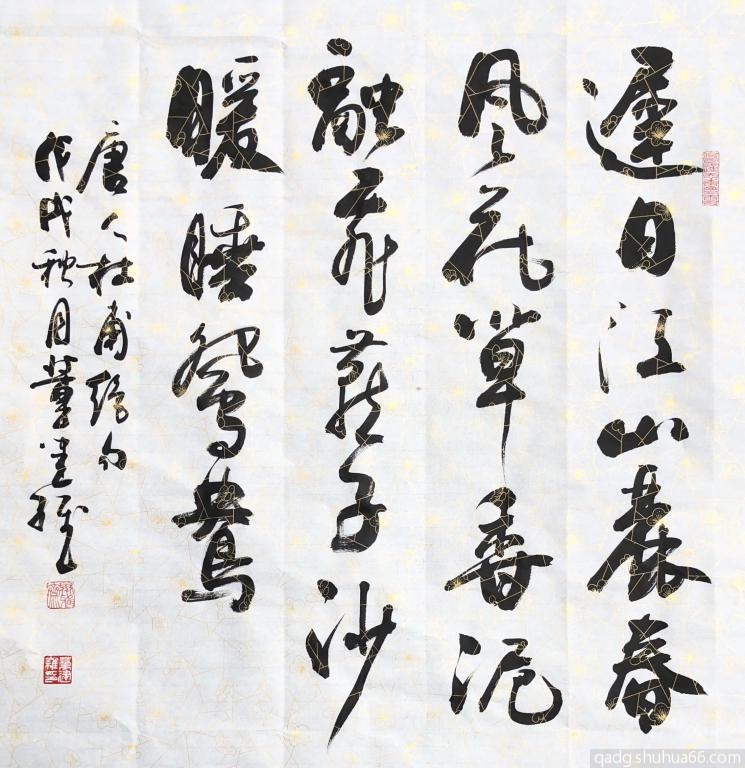 遲日江山麗春
風花草香泥
融飛燕子沙
暖睡鴛鴦
唐人杜甫絕句
戊戌秋月董建
qadg.shuhua66.com